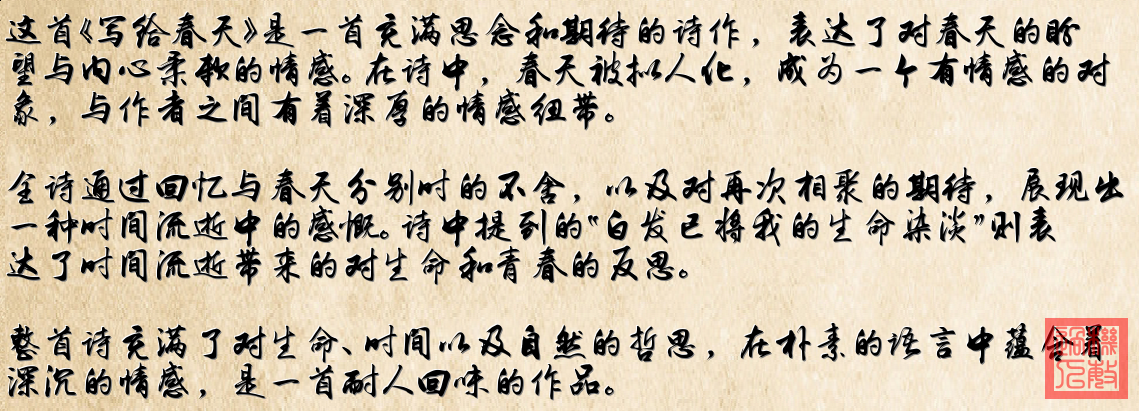 这首《写给春天》是一首充满思念和期待的诗作，表达了对春天的盼
望与内心柔软的情感。在诗中，春天被拟人化，成为一个有情感的对
象，与作者之间有着深厚的情感纽带。
全诗通过回忆与春天分别时的不舍，以及对再次相聚的期待，展现出
一种时间流逝中的感慨。诗中提到的“白发已将我的生命染淡”则表
达了时间流逝带来的对生命和青春的反思。
整首诗充满了对生命、时间以及自然的哲思，在朴素的语言中蕴含着
深沉的情感，是一首耐人回味的作品。